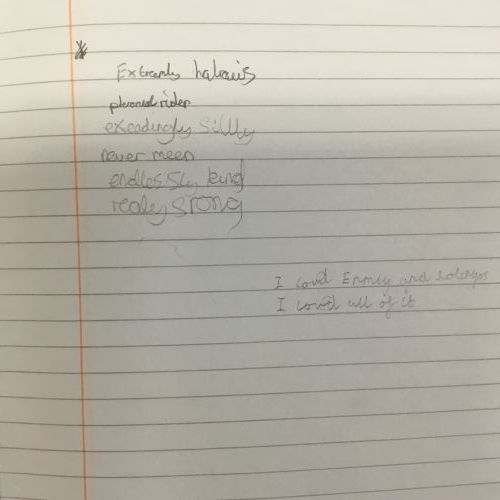 Extreamly halraiis
phronid rider
excedingly silly
never meen
endlessly kind
realey strong
I loved Ermiy and holerps
I loved all of it